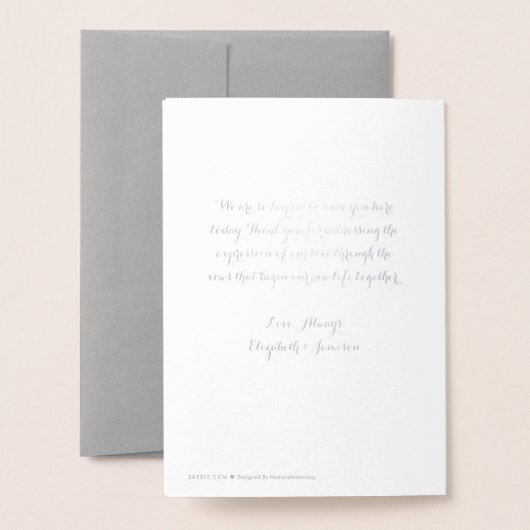 We are so happy to have you here
today. Thank you for witnessing the
expression of our love through the
vows that begin our new life together
Love Always
Elizabeth & Jamison
ZAZZLE.COM ♥ Designed By ModernMatrimony